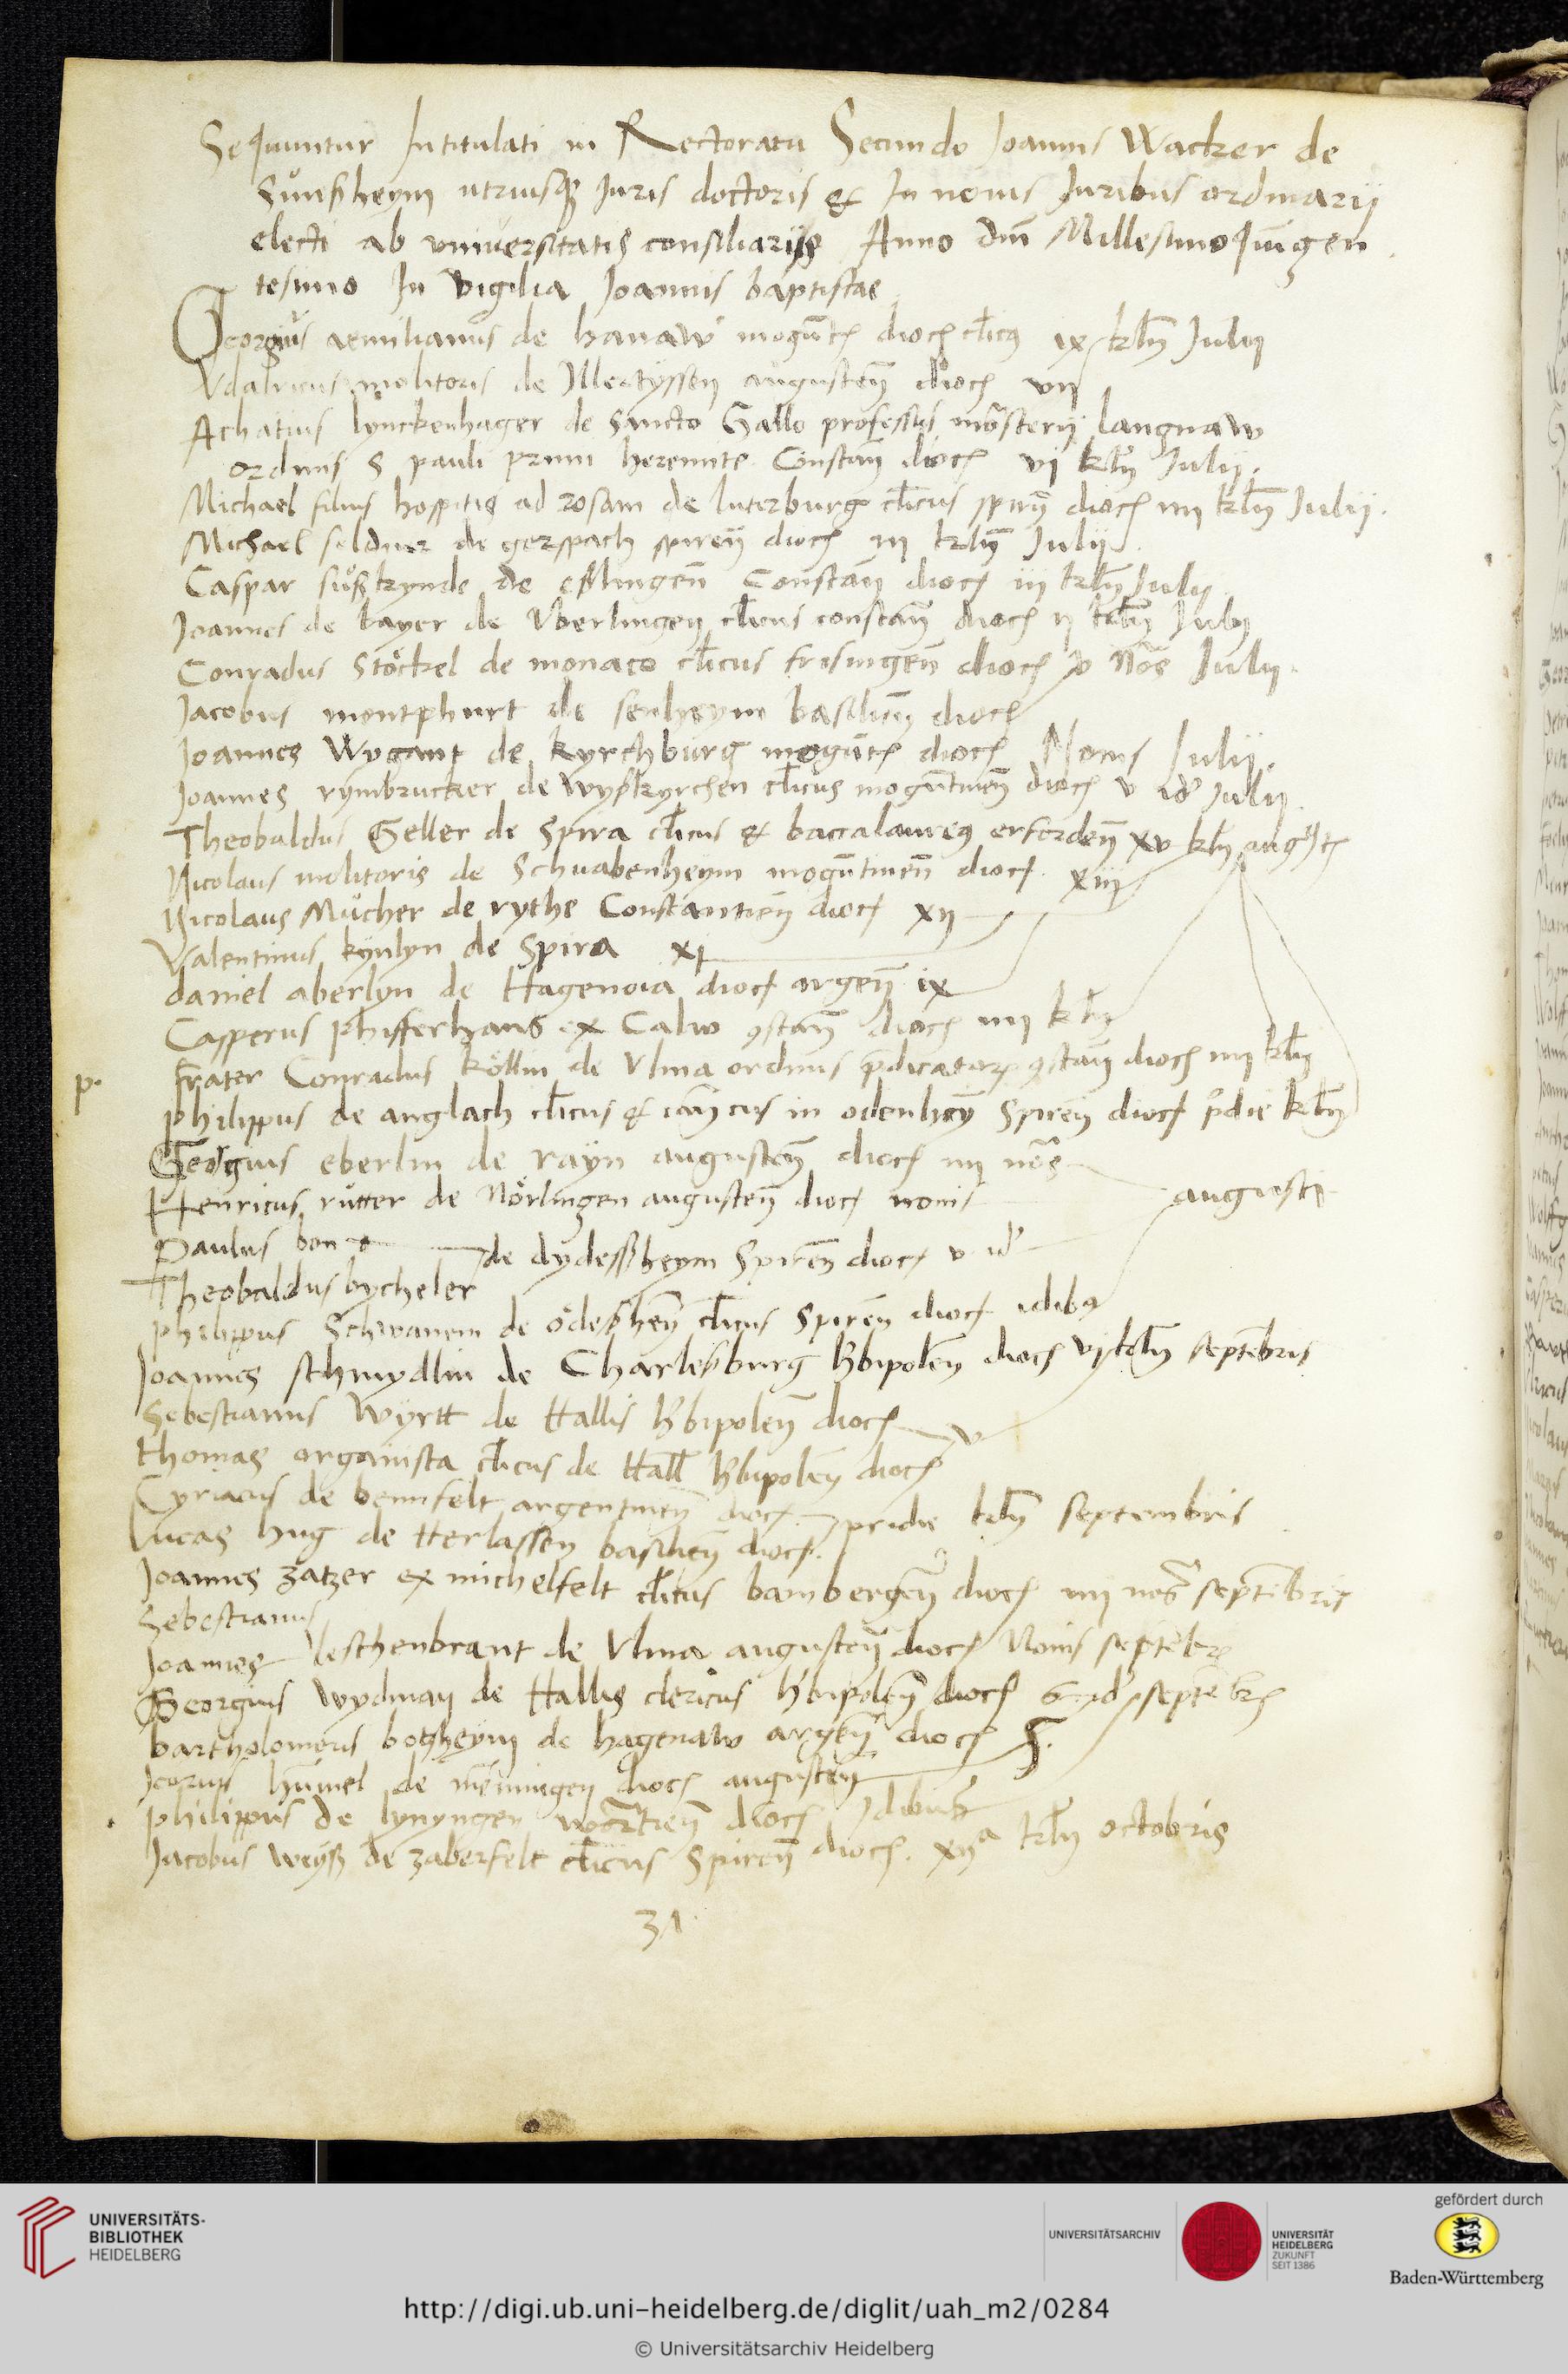 Sequuntur Intitulati in Rectoratu Secundo Joannis Wacker de
Sunßheym utriusq3 Juris doctoris & In novis Juribus ordinarii
electi ab universitatis consiliarijs Anno dni Millesimo quingen
tesimo In vigilia Joannis baptistae
Georgius aemilianus de hanaw mogunt dioc clicus ix kln Julii
Vdalricus molitoris de Illertyssen augusten dioc vii
Achatius lynckenhager de Sancto Gallo professus monasterii langnaw
ordinis S pauli primi heremite Constan dioc vi kln Julij.
Michael filius hospitis ad rosam de luterburg clicus spiren dioc iiii kln Julij.
Michael soldner de gerspach spiren dioc iii kln Julij
Caspar sußkynde de eßlingen Constan dioc iij kln Julii
Joannes de kayer de Vberlingen clicus constan dioc ii kln Julii
Conradus Stöckel de monaco clicus frisingen dioc v nos Julii.
Jacobus montphurt de senheym basilien dioc
Joannes Wygant de kyrchburg mogunt dioc Nonis Julij.
Joannes rymbrucker de wyßkyrchen clicus moguntinen dioc v id Julii
Theobaldus Geller de Spira clicus & baccalaureus erforden xv kln augusti
Nicolaus molitoris de Schuabenheym moguntinen dioc xiii
Nicolaus Mücher de rythe Constantien dioc xii
Valentinus kynlyn de Spira xi
daniel aberlyn de Hagenoia dioc argen ix
Casperus phifferhans ex Calw constan dioc iiii kln
p. frater Conradus köllin de Vlma ordinis predicator constan dioc iiii kln
philippus de anglach clicus & canicus in odenheym Spiren dioc pridie kln
Georgius eberlin de rayn augusten dioc iiii nos
Henricus rutter de Nörlingen augusten dioc nonis augusti
Paulus bon
de dydeßheym Spiren dioc v id
Theobaldus bycheler
philippus Schwanem de odeßheym clicus Spiren dioc idibus
Joannes schmydlin de Charleßburg herbipolen dioc vij kln septembris
Sebestianus Wyrtt de Hallis herbipolen dioc v
thomas organista clicus de Hall herbipolen dioc
Cyriacus de bennfelt argentinen dioc
pridie kln septembris
Lucas hug de Herlassen basilien dioc.
Joannes zatzer ex michelfelt clicus bambergen dioc iiii nos septembris
Sebestianus
Joannes leschenbrant de Vlma augusten dioc Nonis septebr
Georgius wydman de Hallis clericus herbipolen dioc 6 id septebr
bartholomeus botzheym de hagenaw argen dioc
hummel de memmingen dioc augusten
philippus de lynyngen wormatien dioc Idibus
Jacobus weyß de zaberfelt clicus Spiren dioc. xii kln octobris
31
UNIVERSITÄTS-
BIBLIOTHEK
HEIDELBERG
UNIVERSITÄTSARCHIV
UNIVERSITÄT
HEIDELBERG
ZUKUNFT
SEIT 1386
gefördert durch
Baden-Württemberg
http://digi.ub.uni-heidelberg.de/diglit/uah_m2/0284
© Universitätsarchiv Heidelberg